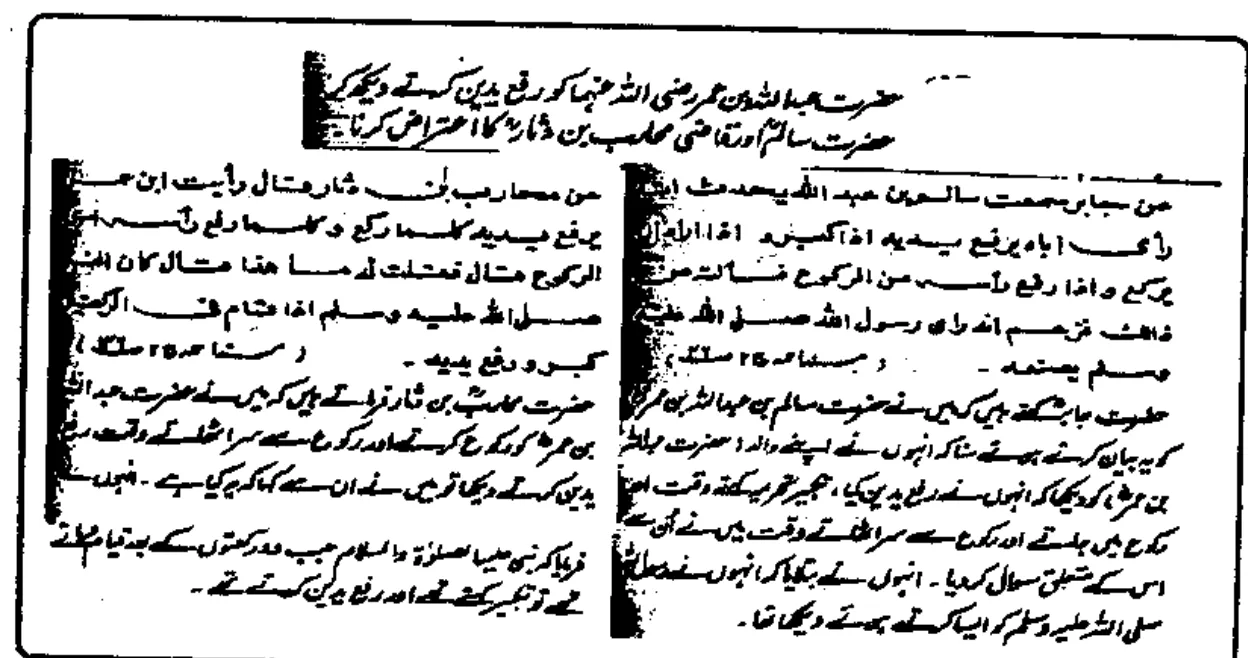 حضرت عبداللہ بن عمر رضی اللہ عنہما کو رفع یدین کرتے دیکھ کر
حضرت سالمؒ اور قاضی محارب بن دثارؒ کا اعتراض کرنا۔
عن جابر سمعت سالم بن عبد الله يحدث انه
رأى اباه يرفع يديه اذا كبر و اذا اراد ان
يركع و اذا رفع رأسه من الركوع فسألت عن
ذالك فزعم انه رأى رسول الله صلى الله عليه
وسلم يصنعه ۔ ( مسند احمد ج۲ ص )
حضرت جابرؒ کہتے ہیں کہ میں نے حضرت سالم بن عبداللہ بن عمرؓ
کو یہ بیان کرتے ہوئے سنا کہ انہوں نے اپنے والد ( حضرت عبداللہ
بن عمرؓ ) کو دیکھا کہ انہوں نے رفع یدین کیا ، تکبیر تحریمہ کہتے وقت اور
رکوع میں جاتے اور رکوع سے سر اٹھاتے وقت میں نے اُن سے
اس کے متعلق سوال کر دیا ۔ انہوں نے بتلایا کہ انہوں نے رسول اللہ
صلی اللہ علیہ وسلم کو ایسا کرتے ہوئے دیکھا تھا ۔
عن محارب بن دثار قال رأيت ابن عمر
يرفع يديه كلما ركع و كلما رفع رأسه من
الركوع قال فقلت له ما هذا قال كان النبي
صلى الله عليه وسلم اذا قام في الركعتين
كبر و رفع يديه ۔ ( مسند احمد ج۲ ص )
حضرت محاربؒ بن دثار فرماتے ہیں کہ میں نے حضرت عبداللہ
بن عمرؓ کو رکوع کرتے اور رکوع سے سر اٹھاتے وقت رفع
یدین کرتے دیکھا تو میں نے ان سے کہا کہ یہ کیا ہے ۔ انہوں نے
فرمایا کہ نبی علیہ الصلوٰۃ والسلام جب دو رکعتوں کے بعد قیام فرماتے
تھے تو تکبیر کہتے تھے اور رفع یدین کرتے تھے ۔